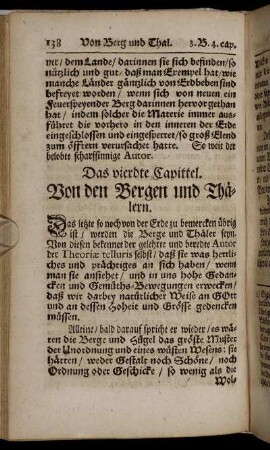 138 Von Berg und Thal. 3. B. 4. cap.
ner/ dem Lande/ darinnen sie sich befinden/ so
nützlich und gut/ daß man Exempel hat/ wie
manche Länder gäntzlich von Erdbeben sind
befreyet worden/ wenn sich von neuen ein
Feuerspeyender Berg darinnen hervorgethan
hat/ indem solcher die Materie immer aus-
führet die vorhero in den inneren der Erde
eingeschlossen und eingesperret/ so groß Elend
zum öfftern verursachet hatte. So weit der
belobte scharffsinnige Autor.
Das vierdte Capittel.
Von den Bergen und Thä-
lern.
Das letzte so noch von der Erde zu bemercken übrig
ist/ werden die Berge und Thäler seyn.
Von diesen bekennet der gelehrte und beredte Autor
der Theoriæ telluris selbst/ daß sie was herrli-
ches und prächtiges an sich haben/ wenn
man sie ansiehet/ und in uns hohe Gedan-
cken und Gemüths-Bewegungen erwecken/
daß wir darbey natürlicher Weise an GOtt
und an dessen Hoheit und Grösse gedencken
müssen.
Alleine/ bald darauf spricht er wieder/ es wä-
ren die Berge und Hügel das gröste Muster
der Unordnung und eines wüsten Wesens: sie
hätten/ weder Gestalt noch Schöne/ noch
Ordnung oder Geschicke/ so wenig als die
Wol-